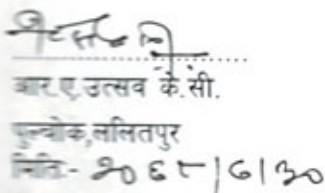 आर.ए.उत्सव के.सी.
पुल्चोक,ललितपुर
मितिः- २०६८/६/३०